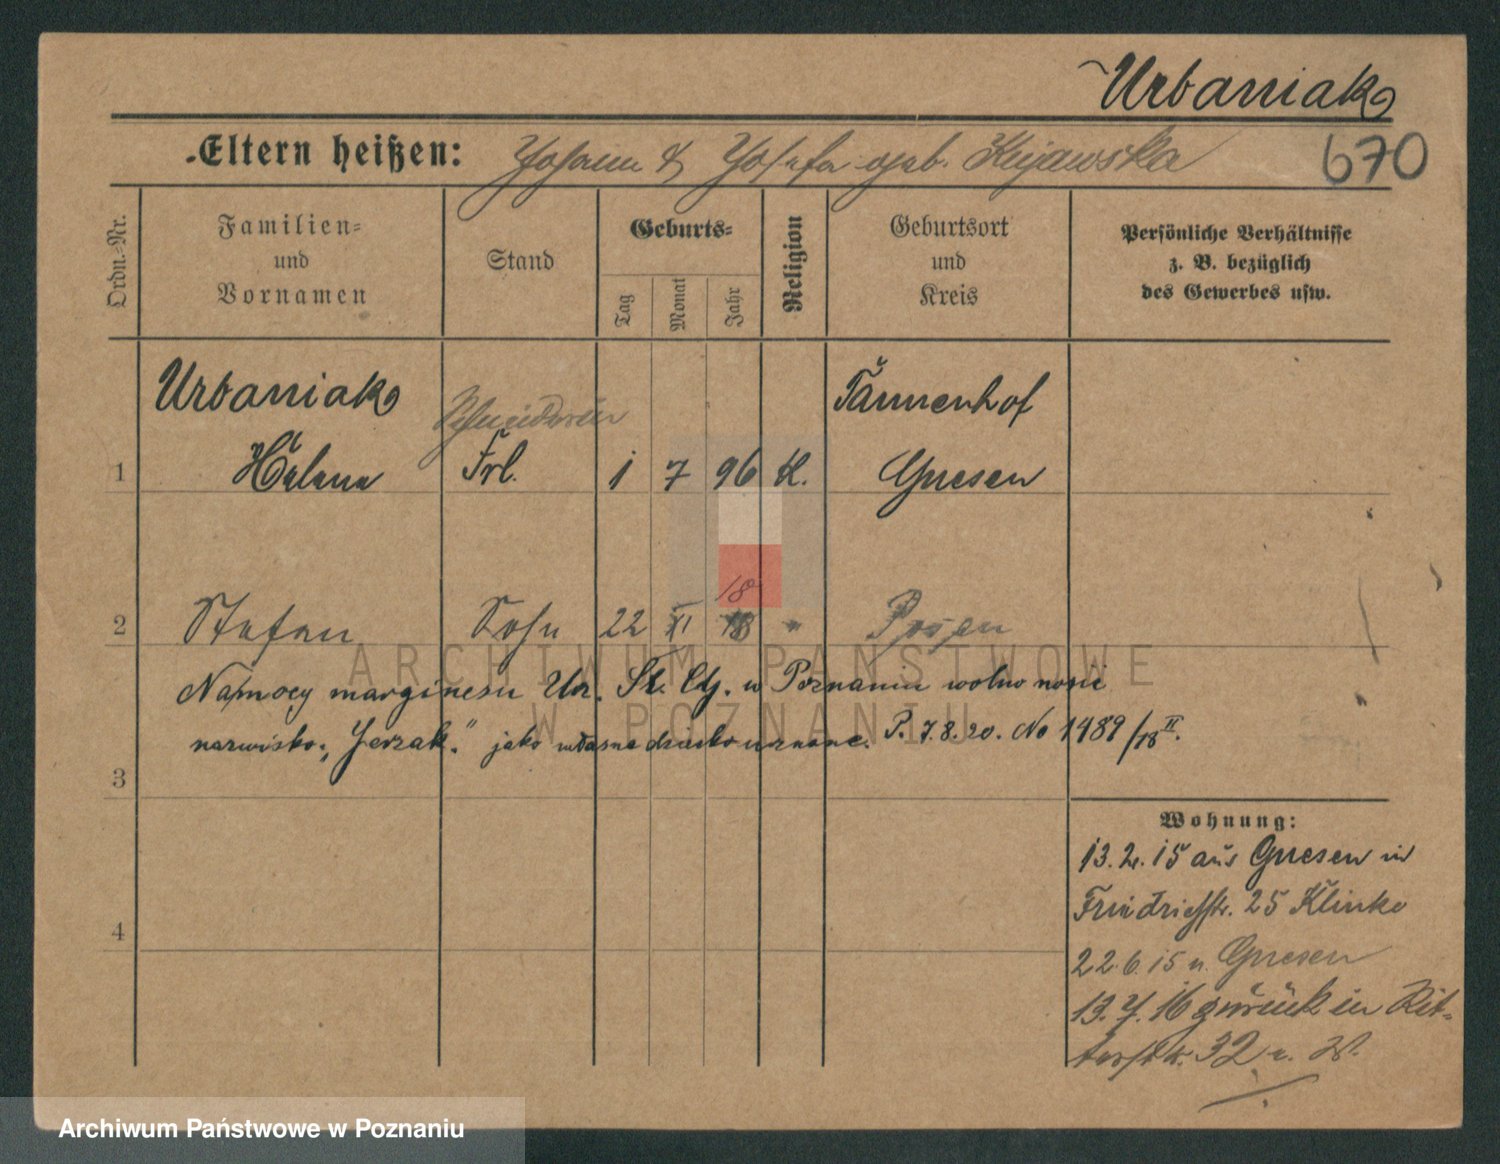 Urbaniak
Eltern heißen: Johann & Josefa geb. Kujawska 670
Ordn.-Nr.
Familien- und Vornamen
Stand
Geburts-
Tag
Monat
Jahr
Religion
Geburtsort und Kreis
Persönliche Verhältnisse
z. B. bezüglich
des Gewerbes usw.
Urbaniak Schneiderin Tannenhof
1 Helena Frl. 1 7 96 kt. Gnesen
18
2 Stefan Sohn 22 XI 18 " Posen
Na mocy marginesu Urz. St. Cy. w Poznaniu wolno nosić
nazwisko „Jerzak" jako własne dziecko uznane. P. 7.8.20. No 1489/18 II.
3
4
Wohnung:
13.2.15 aus Gnesen in
Friedrichstr. 25 Klinke
22.6.15 n. Gnesen
13.7.16 zurück in Rit-
terstr. 32
ARCHIWUM PAŃSTWOWE
W POZNANIU
Archiwum Państwowe w Poznaniu